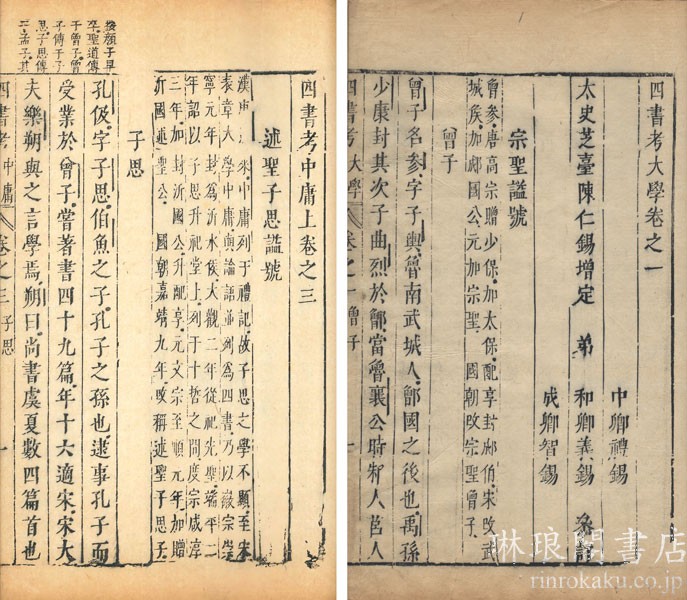 四書考大學卷之一
太史芝臺陳仁錫增定 弟 和卿義錫
中卿禮錫
成卿智錫
宗聖謚號
曾參唐高宗贈少保加太保配享封郕伯宋改武
城侯加郕國公元加宗聖 國朝改宗聖曾子
曾子
曾子名參字子輿魯南武城人鄫國之後也禹孫
少康封其次子曲烈於鄫當魯襄公時邾人莒人
四書考 大學 卷之一 曾子
按顏子早
卒聖道傳
于曾子曾
子傳于子
思子思傳
于孟子其
四書考中庸上卷之三
述聖子思謚號
中庸列于禮記故子思之學不顯至宋
表章大學中庸與論語並列爲四書乃以徽宗崇
寧元年封爲沂水侯大觀二年從祀先聖端平二
年詔以子思升祀堂上列于十哲之間度宗咸淳
三年加封沂國公升配享元文宗至順元年加贈
沂國述聖公 國朝嘉靖九年改稱述聖子思子
子思
孔伋字子思伯魚之子孔子之孫也逮事孔子而
受業於曾子嘗著書四十九篇年十六適宋宋大
夫樂朔與之言學焉朔曰尚書虞夏數四篇首也
四書考 中庸 卷之三 子思 一
琳琅閣書店
rinrokaku.co.jp